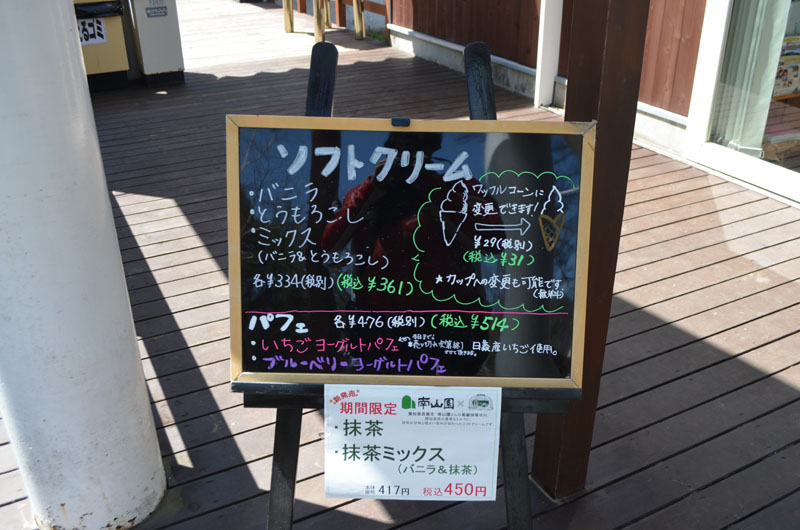 ソフトクリーム
・バニラ
・とうもろこし
・ミックス
(バニラ&とうもろこし)
各¥334(税別) (税込¥361)
ワッフルコーンに
変更できます!
¥29(税別)
(税込¥31)
★カップへの変更も可能です。
(無料)
パフェ 各¥476(税別) (税込¥514)
・いちごヨーグルトパフェ
日義産いちご使用。
・ブルーベリーヨーグルトパフェ
新発売
期間限定
南山園 ×
・抹茶
・抹茶ミックス
(バニラ&抹茶)
本体価格 417円 税込450円